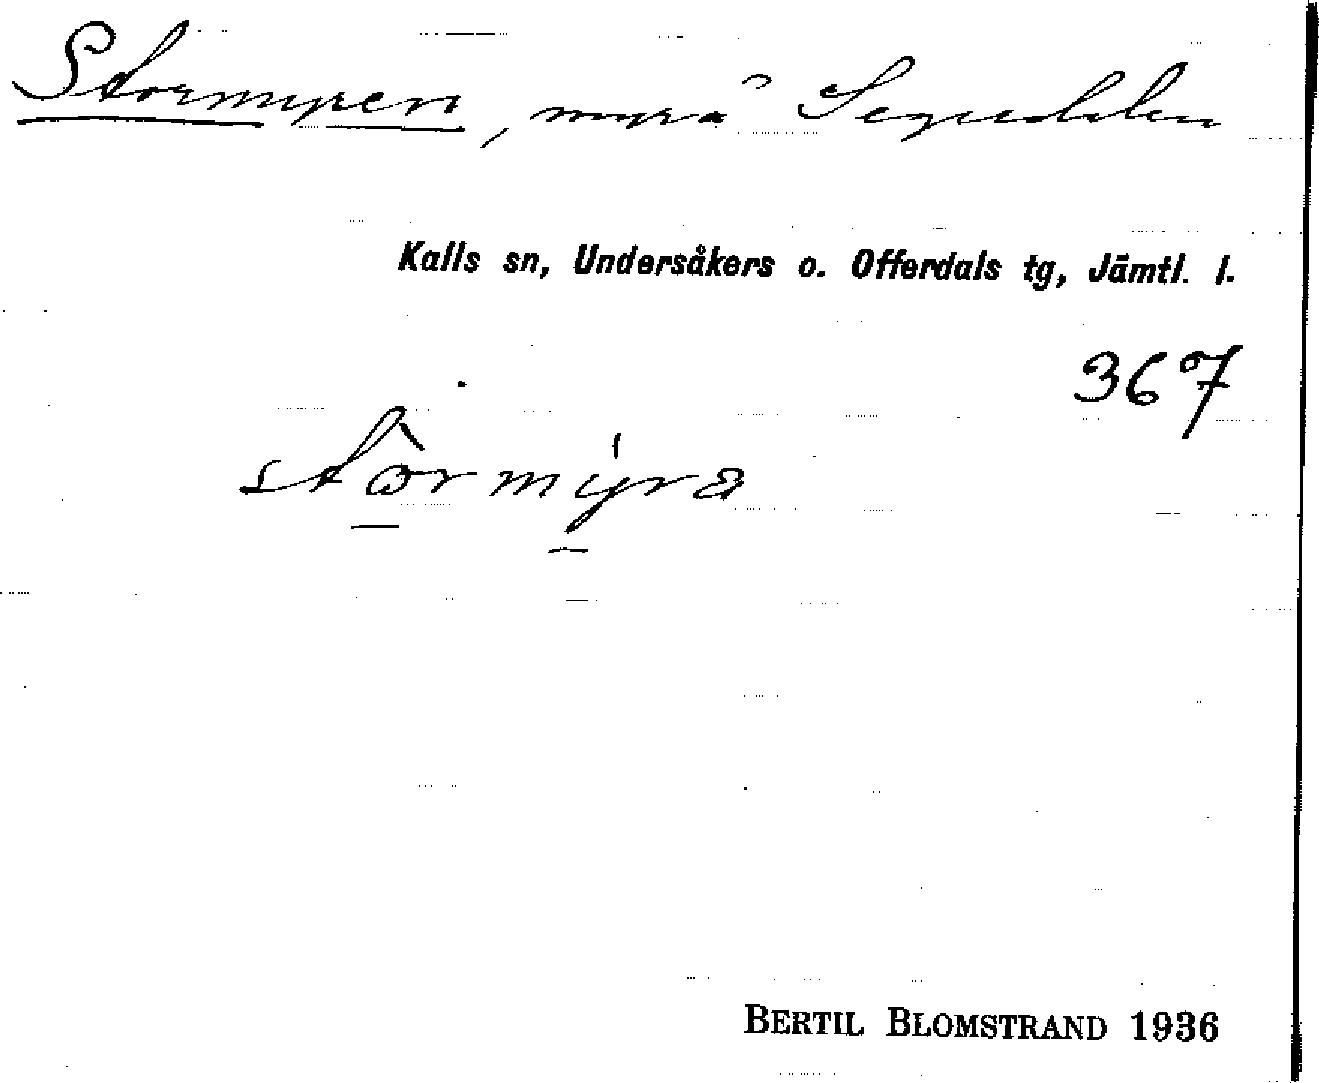 Stormyren, myr å
Kalls sn, Undersåkers o. Offerdals tg, Jämtl. l.
367
BERTIL BLOMSTRAND 1936